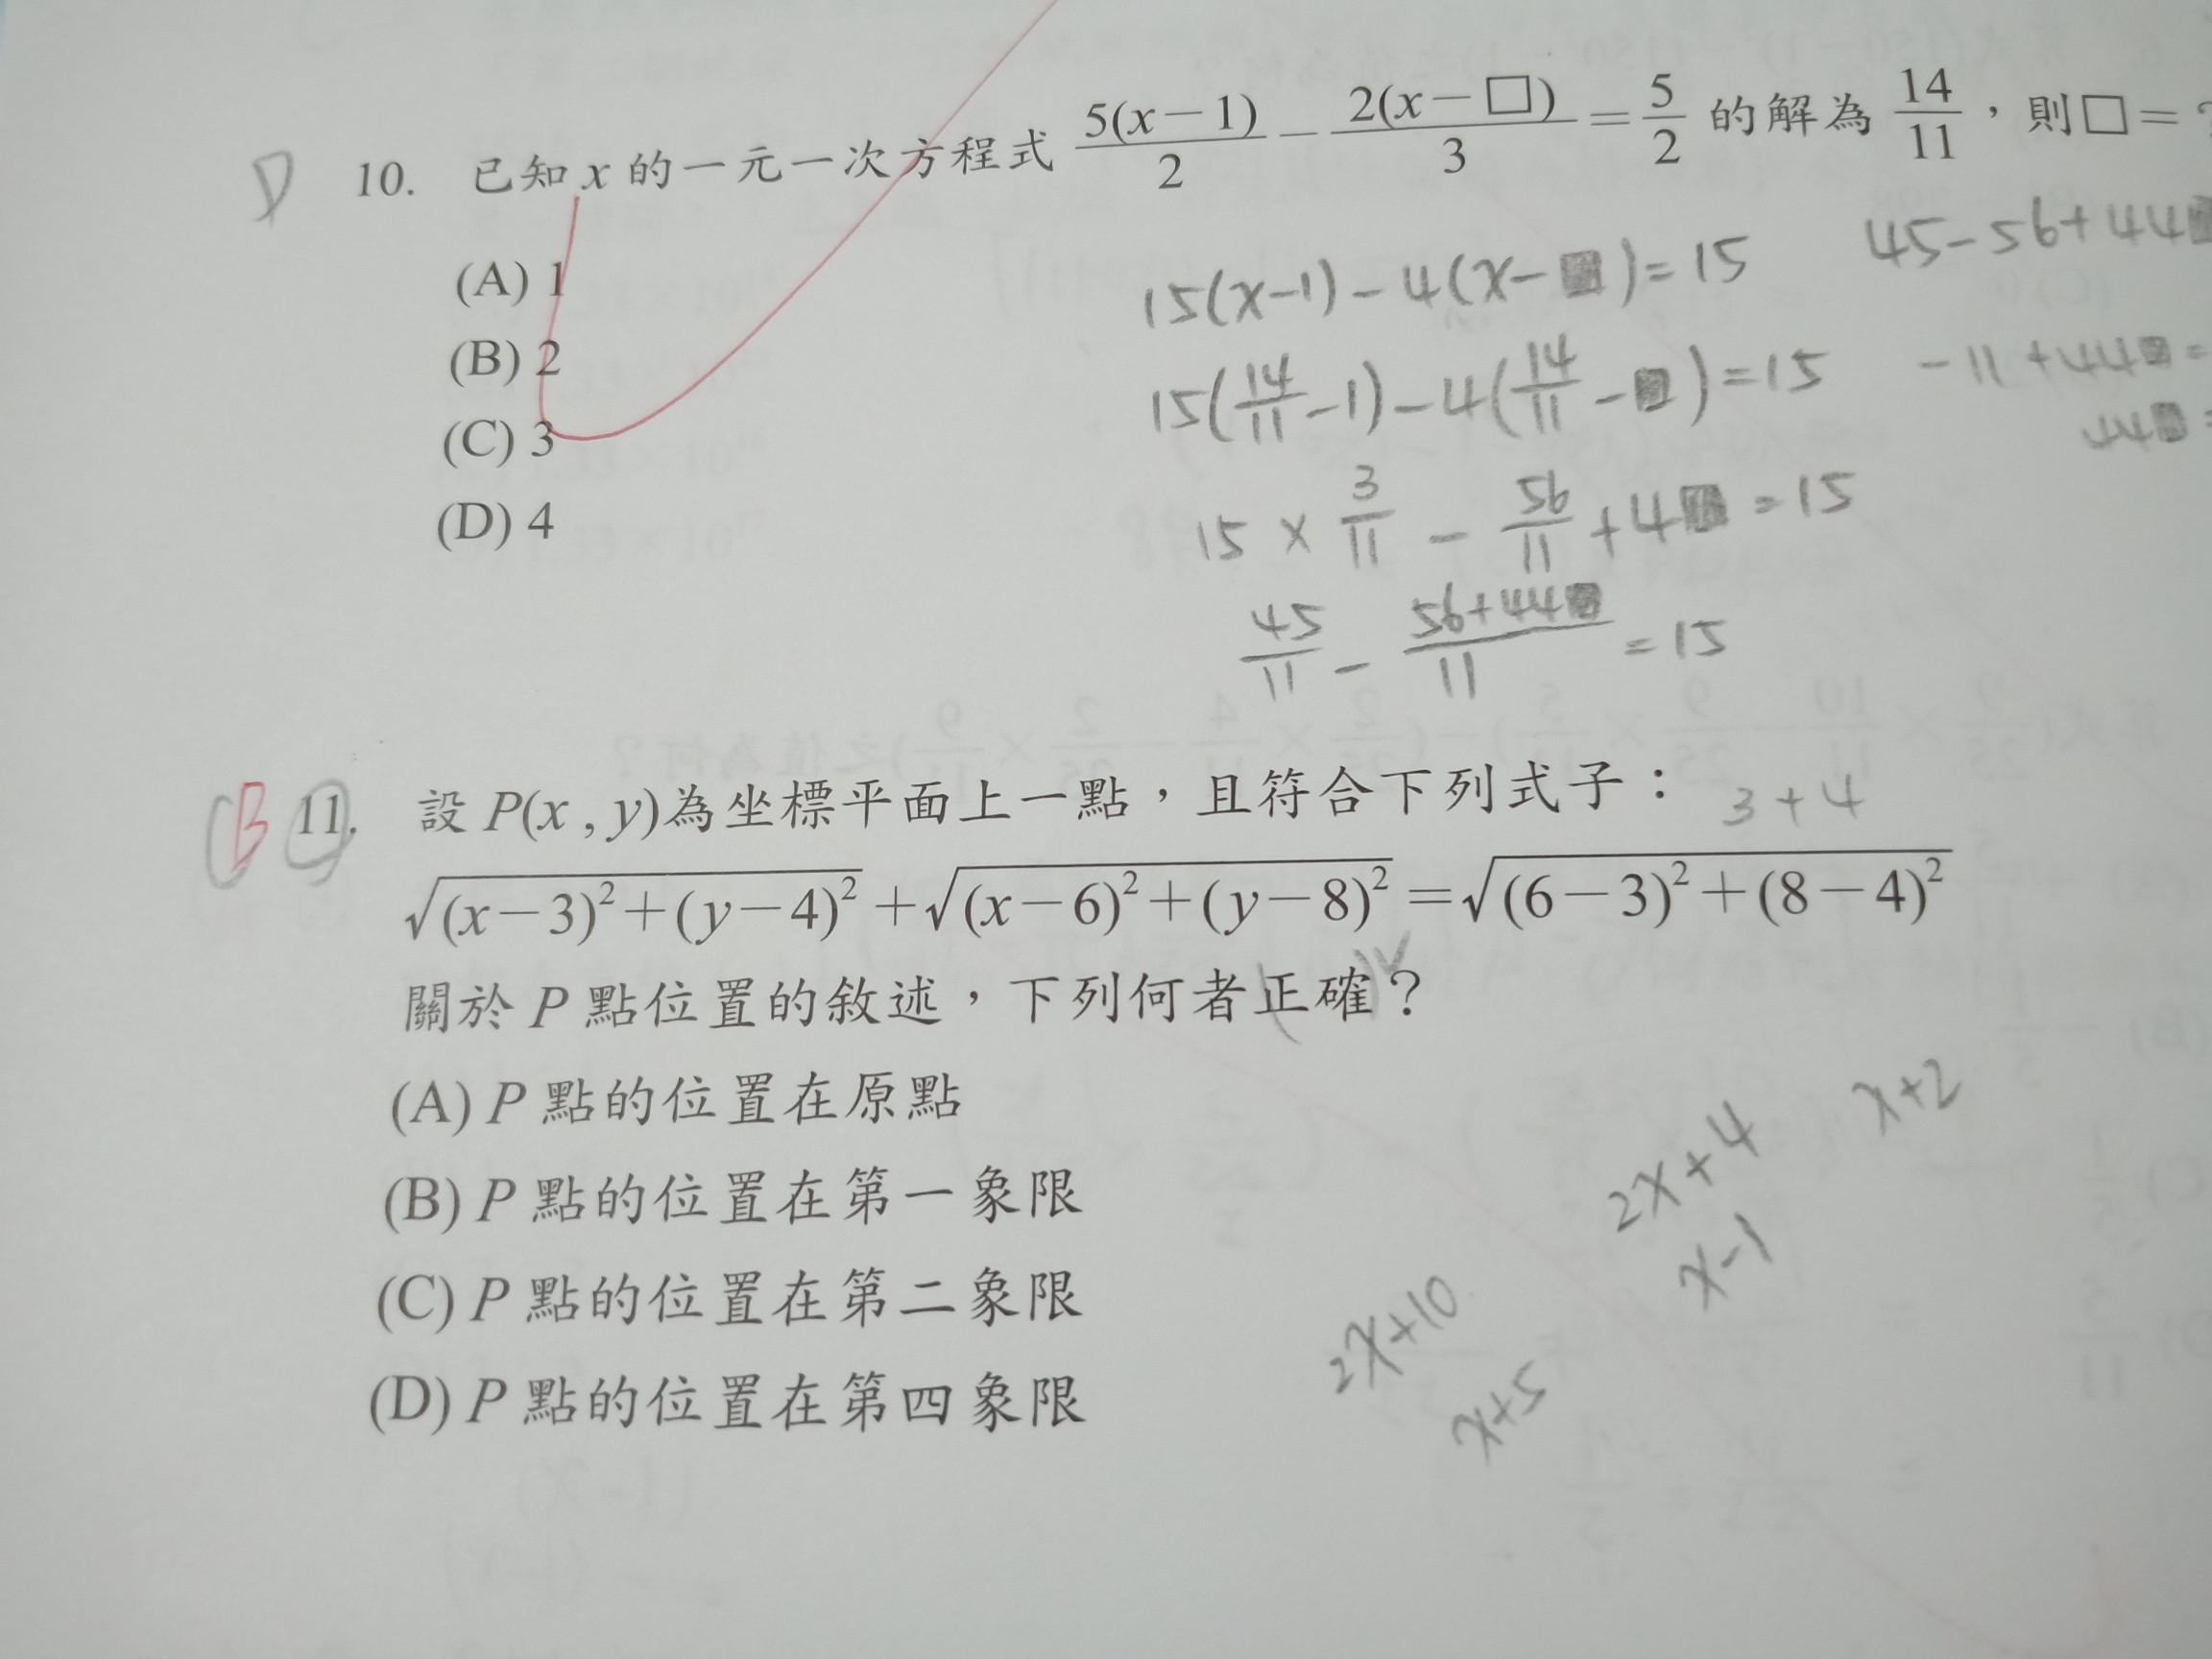 D 10. 已知 x 的一元一次方程式 5(x－1)/2 － 2(x－□)/3 ＝ 5/2 的解為 14/11，則□＝
(A) 1
(B) 2
(C) 3
(D) 4
15(x-1)-4(x-□)=15
15(14/11-1)-4(14/11-□)=15
15×3/11-56/11+4□=15
45/11-56+44□/11=15
45-56+44□
-11+44□=
44□=
B 11. 設 P(x , y)為坐標平面上一點，且符合下列式子：
3+4
√(x－3)²＋(y－4)²＋√(x－6)²＋(y－8)²＝√(6－3)²＋(8－4)²
關於 P 點位置的敘述，下列何者正確？
(A) P 點的位置在原點
(B) P 點的位置在第一象限
(C) P 點的位置在第二象限
(D) P 點的位置在第四象限
x+2
2x+4
x-1
2x+10
x+5